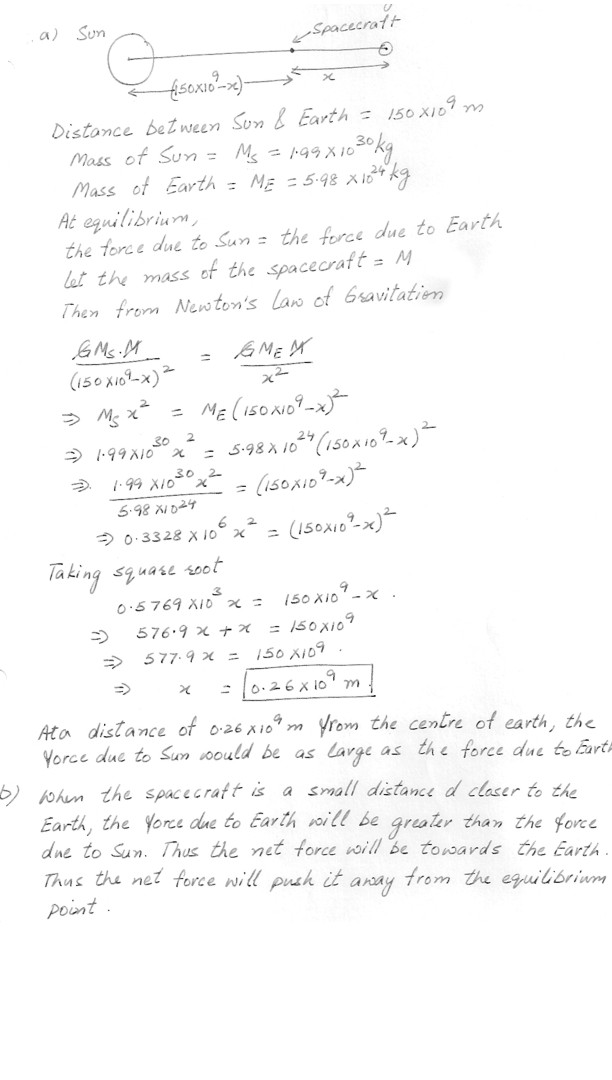 a) Sun
Spacecraft
(150×10⁹-x)
x
Distance between Sun & Earth = 150×10⁹ m
Mass of Sun = Mₛ = 1.99×10³⁰ kg
Mass of Earth = M_E = 5.98 ×10²⁴ kg
At equilibrium,
the force due to Sun = the force due to Earth
let the mass of the spacecraft = M
Then from Newton's Law of Gravitation
GMₛ.M / (150×10⁹-x)² = GM_E M / x²
⇒ Mₛ x² = M_E (150×10⁹-x)²
⇒ 1.99×10³⁰ x² = 5.98×10²⁴ (150×10⁹-x)²
⇒ 1.99 ×10³⁰ x² / 5.98 ×10²⁴ = (150×10⁹-x)²
⇒ 0.3328 ×10⁶ x² = (150×10⁹-x)²
Taking square root
0.5769 ×10³ x = 150×10⁹ - x .
⇒ 576.9 x + x = 150×10⁹
⇒ 577.9 x = 150 ×10⁹ .
⇒ x = 0.26 × 10⁹ m
At a distance of 0.26×10⁹ m from the centre of earth, the
force due to Sun would be as large as the force due to Earth
b) When the spacecraft is a small distance d closer to the
Earth, the force due to Earth will be greater than the force
due to Sun. Thus the net force will be towards the Earth.
Thus the net force will push it away from the equilibrium
point .